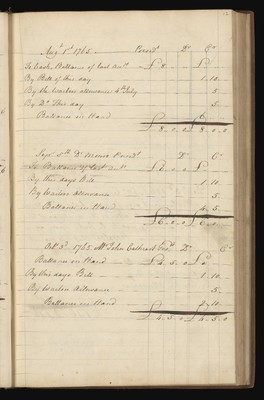 Augt 1st 1765 Presidt Dr Cr
To Cash Ballance of last acct £8 £
By Bill of this day 1.10
By the Waiters allowance 4th July 5
By Do This day 5
Ballance in Hand 6
£8.0.0 £8.0.0
Sepr 5th Dr Presidt Dr Cr
To Ballance of last £6.0.0 £
By this days Bill 1.10
By Waiters allowance 5
Ballance in Hand 4.5
£6.0.0 £6.0.0
Octr 3d 1765 Mr John Presidt Dr Cr
Ballance in Hand £4.5.0 £
By this days Bill 1.10
By Waiters Allowance 5
Ballance in Hand 2.10
£4.5.0 £4.5.0